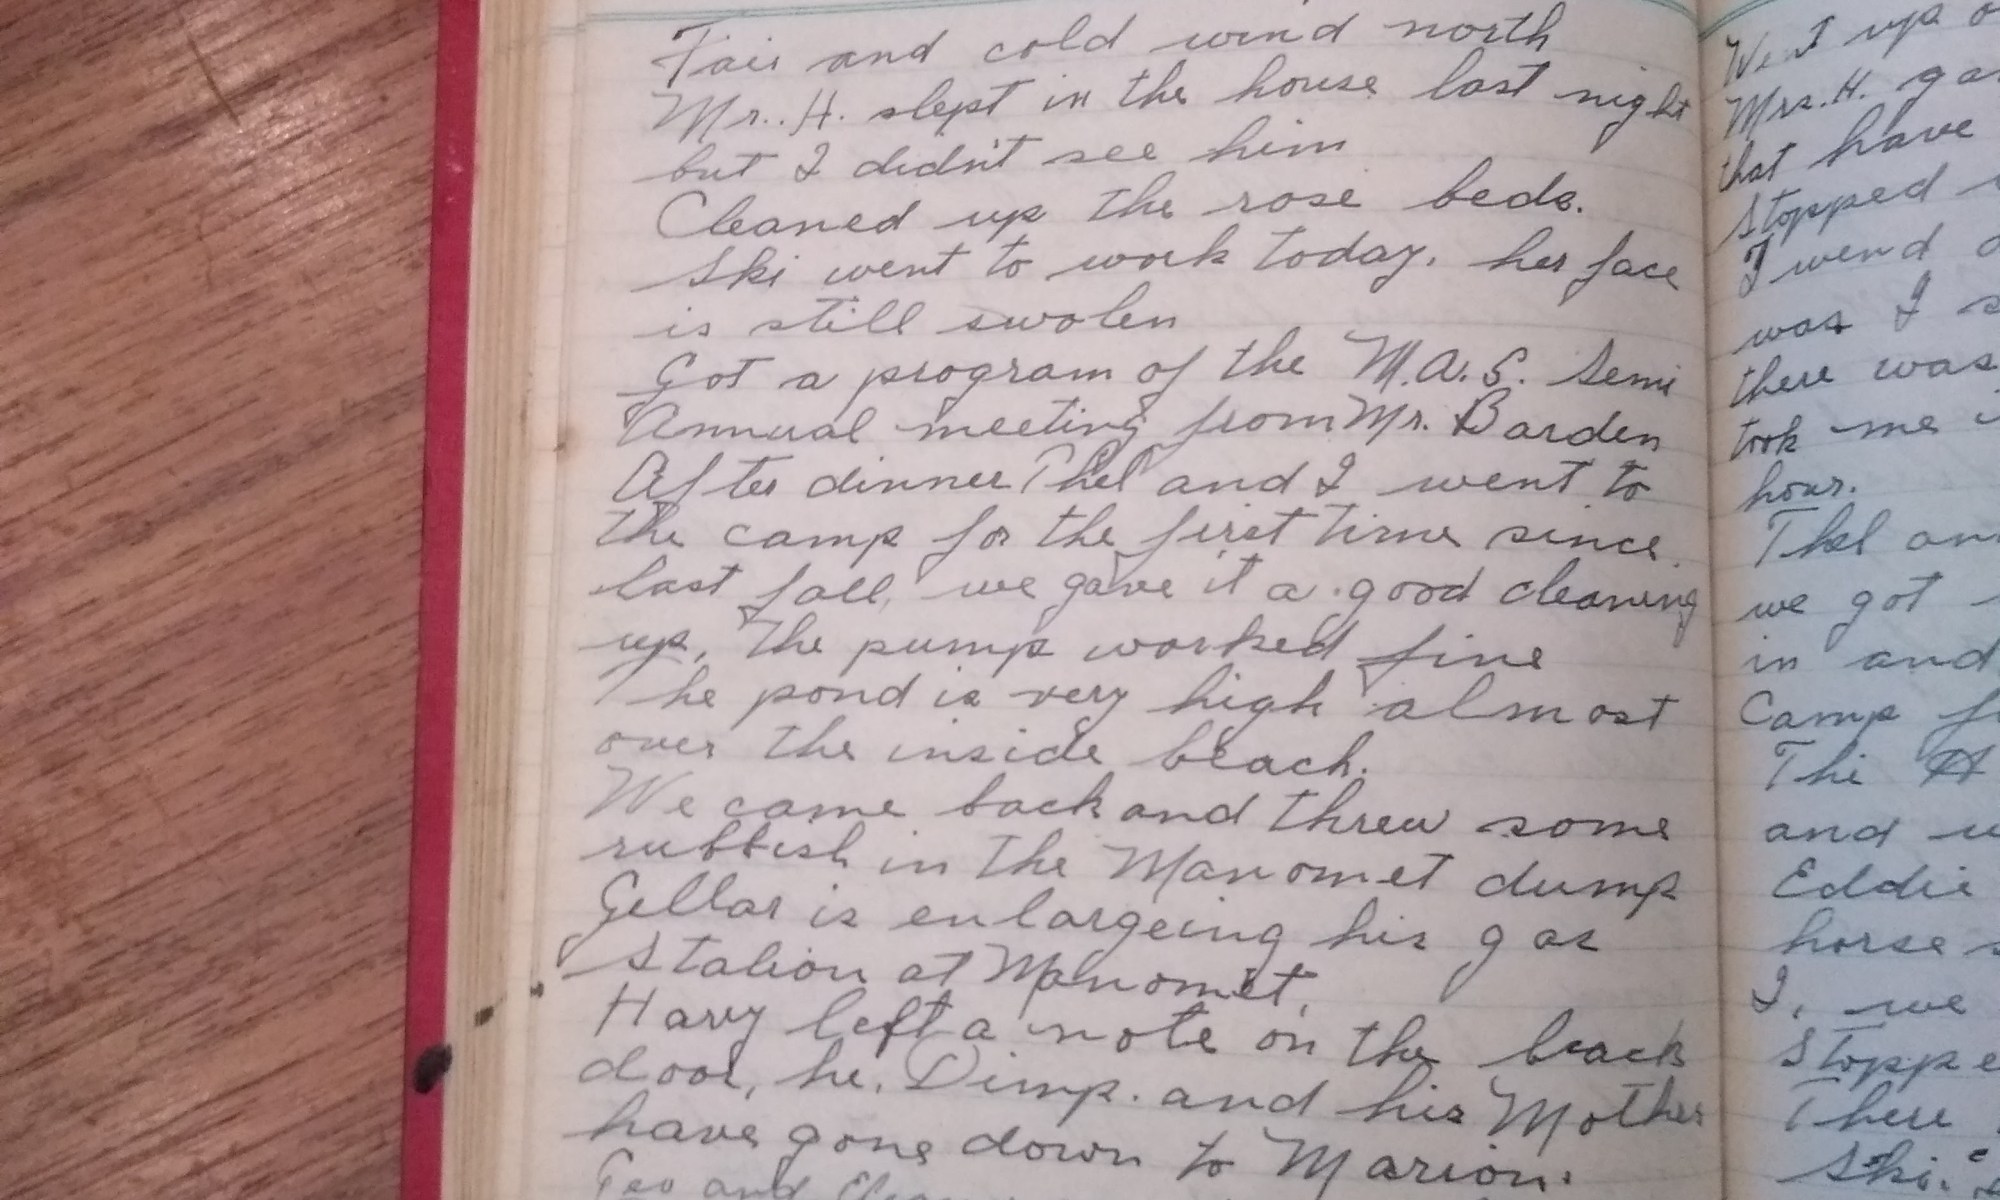 Fair and cold wind north
Mr. H. slept in the house last night
but I didn't see him
Cleaned up the rose beds.
Ski went to work today. her face
is still swolen
Got a program of the M.A.S. Semi
Annual meeting from Mr. Barden
After dinner Thel and I went to
the camp for the first time since
last fall, we gave it a good cleaning
up, the pump worked fine
The pond is very high almost
over the inside beach.
We came back and threw some
rubbish in the Manomet dump
Gellar is enlargeing his gas
Station at Manomet.
Harry left a note on the back
door, he, Dimp. and his Mother
have gone down to Marion.
Geo and
Went up
Mrs. H.
that have
Stopped
I wend
was I
there was
took me
hour.
Thel
we got
in and
Camp
The H
and
Eddie
horse
I, we
Stoppe
There
Ski.